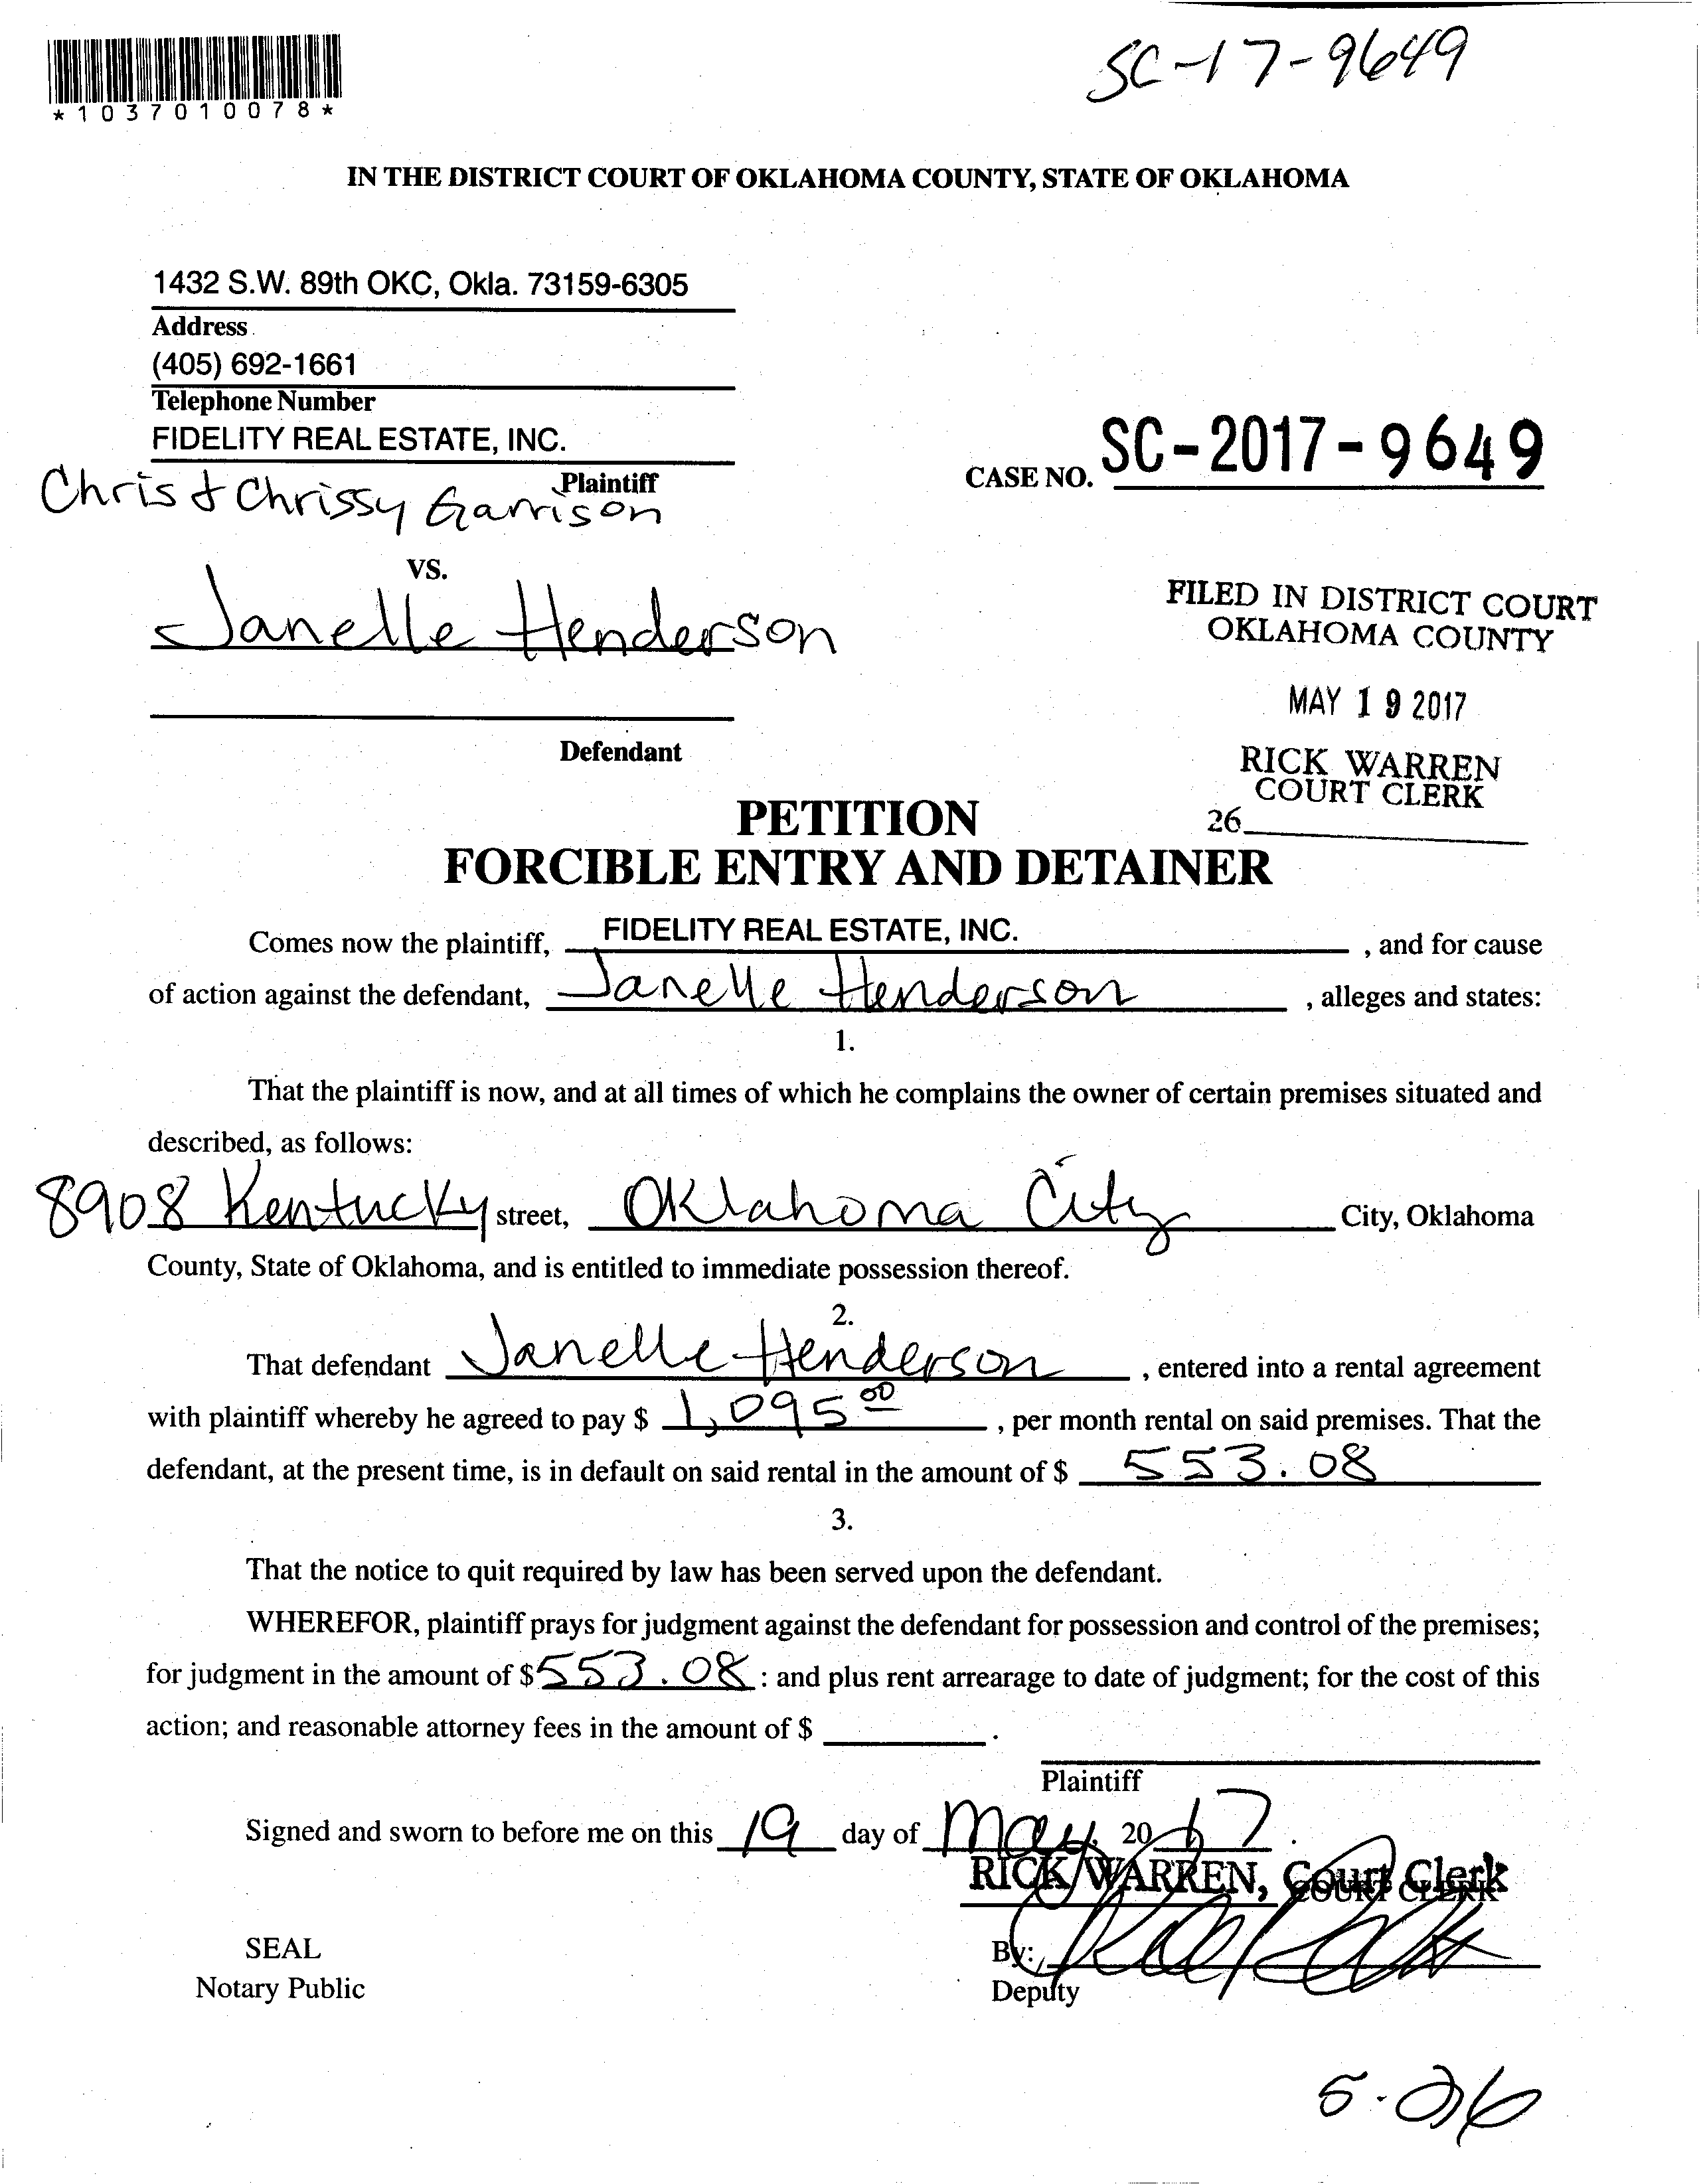 SC-17-9649
*1037010078*
IN THE DISTRICT COURT OF OKLAHOMA COUNTY, STATE OF OKLAHOMA
1432 S.W. 89th OKC, Okla. 73159-6305
Address
(405) 692-1661
Telephone Number
FIDELITY REAL ESTATE, INC.
Plaintiff
Chris & Chrissy Garrison
CASE NO. SC-2017-9649
VS.
Janelle Henderson
Defendant
FILED IN DISTRICT COURT
OKLAHOMA COUNTY
MAY 19 2017
RICK WARREN
COURT CLERK
26
PETITION
FORCIBLE ENTRY AND DETAINER
Comes now the plaintiff, FIDELITY REAL ESTATE, INC. , and for cause
of action against the defendant, Janelle Henderson , alleges and states:
1.
That the plaintiff is now, and at all times of which he complains the owner of certain premises situated and
described, as follows:
8908 Kentucky street, Oklahoma City City, Oklahoma
County, State of Oklahoma, and is entitled to immediate possession thereof.
2.
That defendant Janelle Henderson , entered into a rental agreement
with plaintiff whereby he agreed to pay $ 1,095.00 , per month rental on said premises. That the
defendant, at the present time, is in default on said rental in the amount of $ 553.08
3.
That the notice to quit required by law has been served upon the defendant.
WHEREFOR, plaintiff prays for judgment against the defendant for possession and control of the premises;
for judgment in the amount of $ 553.08 : and plus rent arrearage to date of judgment; for the cost of this
action; and reasonable attorney fees in the amount of $ .
Plaintiff
Signed and sworn to before me on this 19 day of May, 2017.
RICK WARREN, Court Clerk
COURT CLERK
SEAL
Notary Public
By:
Deputy
5-26